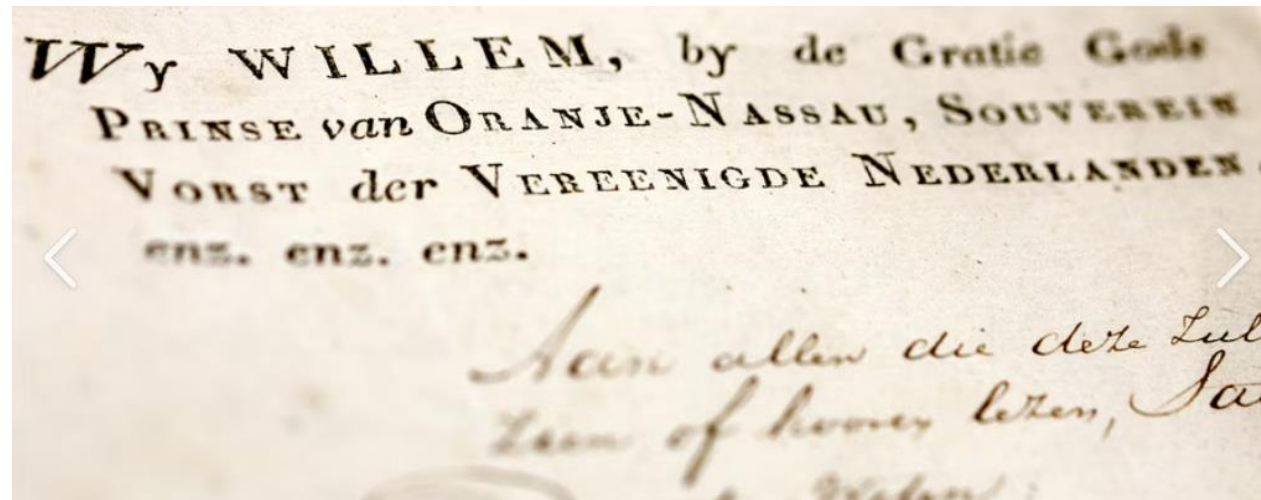 Wy WILLEM, by de Gratie Gods
PRINSE van ORANJE-NASSAU, SOUVEREIN
VORST der VEREENIGDE NEDERLANDEN
enz. enz. enz.
Aan allen die deze zul
zien of hooren lezen, Sa